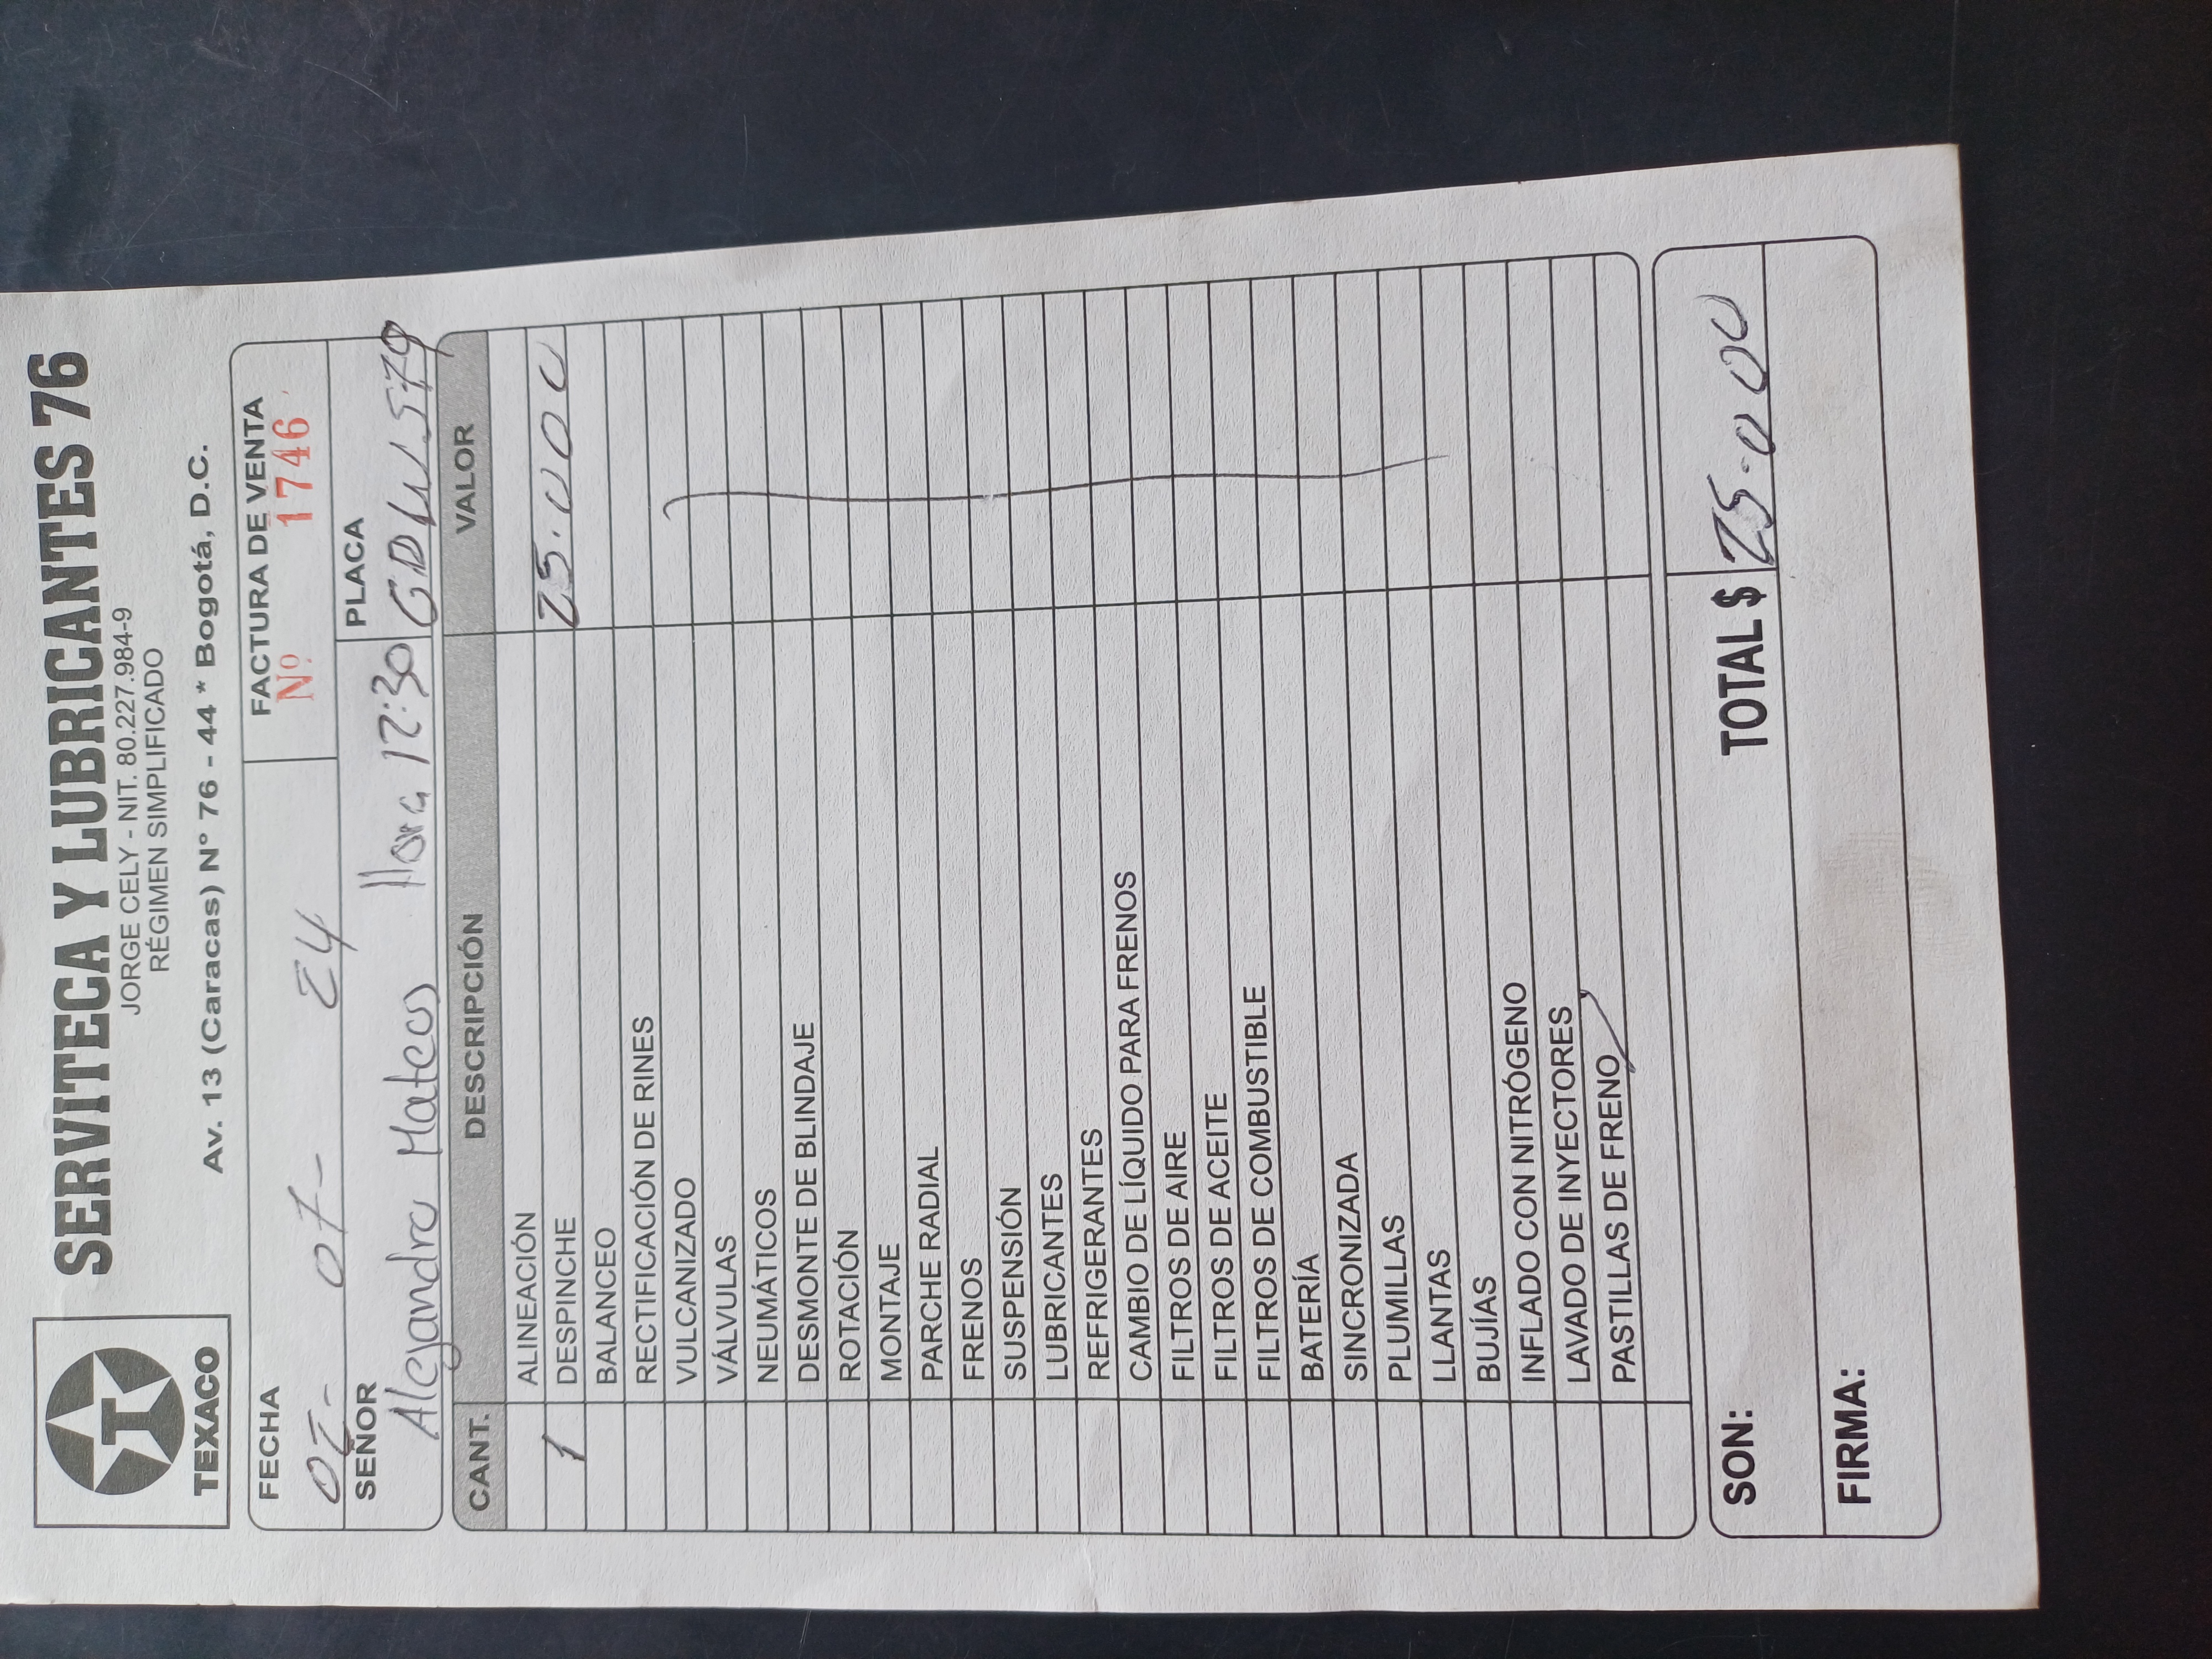 TEXACO
SERVITECA Y LUBRICANTES 76
JORGE CELY - NIT. 80.227.984-9
RÉGIMEN SIMPLIFICADO
Av. 13 (Caracas) N° 76 - 44 * Bogotá, D.C.
FECHA
24
FACTURA DE VENTA
Nº 1746
SEÑOR
Alejandro Mateus Hora 12:30
PLACA
CANT. DESCRIPCIÓN VALOR
ALINEACIÓN
1 DESPINCHE 25.000
BALANCEO
RECTIFICACIÓN DE RINES
VULCANIZADO
VÁLVULAS
NEUMÁTICOS
DESMONTE DE BLINDAJE
ROTACIÓN
MONTAJE
PARCHE RADIAL
FRENOS
SUSPENSIÓN
LUBRICANTES
REFRIGERANTES
CAMBIO DE LÍQUIDO PARA FRENOS
FILTROS DE AIRE
FILTROS DE ACEITE
FILTROS DE COMBUSTIBLE
BATERÍA
SINCRONIZADA
PLUMILLAS
LLANTAS
BUJÍAS
INFLADO CON NITRÓGENO
LAVADO DE INYECTORES
PASTILLAS DE FRENO
SON: TOTAL $ 25.000
FIRMA: